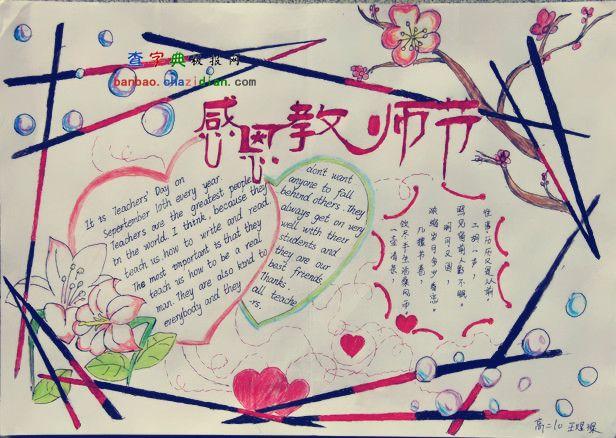 查字典板报网
banbao.chazidian.com
感恩教师节
It is Teachers' Day on
Seperternber 10th every year.
Teachers are the greatest people
in the world. I think, because they
teach us how to write and read.
The most important is that they
teach us how to be a real
man. They are also kind to
everybody and they
don't want
anyone to fall
behind others. They
always get on very
well with their
students and
they are our
best friends
Thanks
all teache
-rs.
往事历历又现从前
二胡声,
明月又圆
几摞书卷,
一壶清茶,
高二10